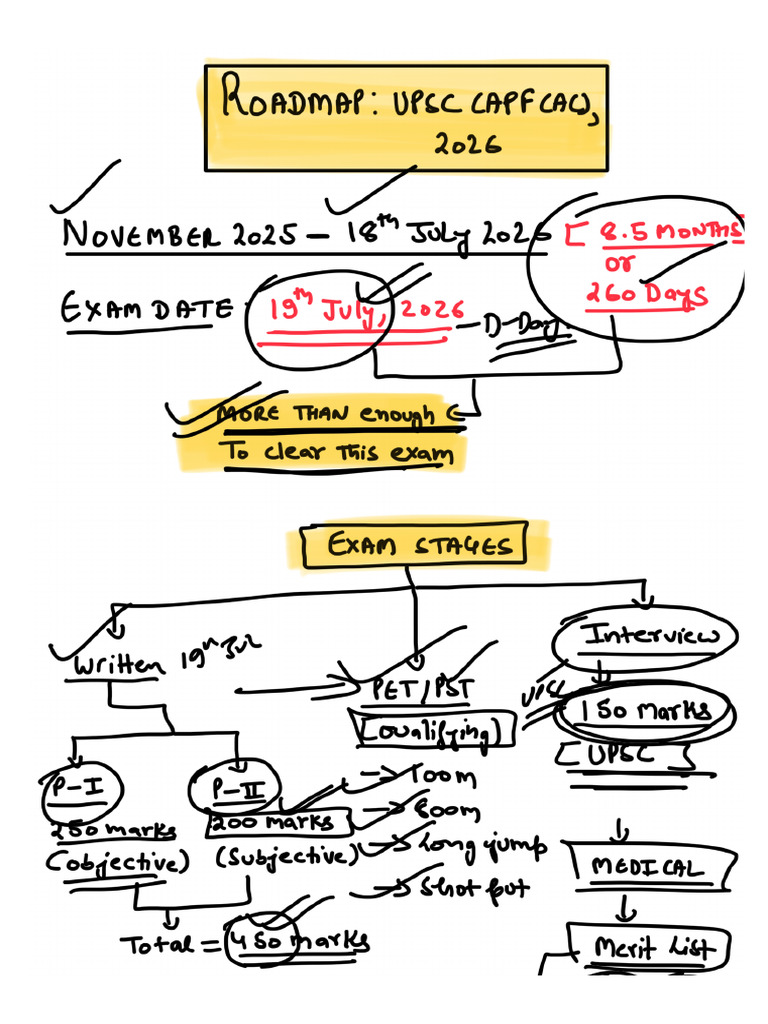 ROADMAP: UPSC CAPF (AC),
2026
NOVEMBER 2025 – 18th July 2026 [ 8.5 MONTHS
or
260 Days
EXAM DATE: 19th July, 2026 – D-Day
MORE THAN enough
To clear this exam
EXAM STAGES
Written 19th Jul
PET/PST
(Qualifying)
Interview
UPSC
150 marks
[UPSC]
P-I
250 marks
(objective)
P-II
200 marks
(Subjective)
Total = 450 marks
100m
800m
Long jump
Shot put
MEDICAL
Merit List